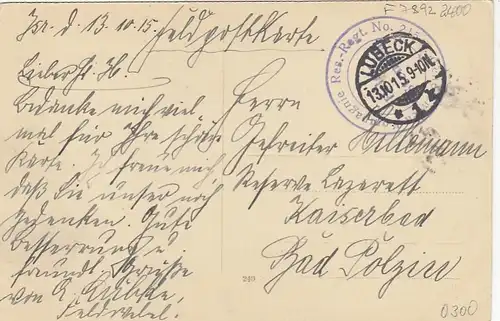 F 7892 2400
d. 13.10.15. Feldpostkarte
Lieber H.
Bedanke mich viel
mal für Ihre schöne
Karte. Ich freue mich
daß Sie unser noch
gedenken. Gute
Besserung u.
freundl. Grüße
von
Feldwebel.
Res.-Regt. No.
LÜBECK
13.10.15.9-10N.
* 1 *
Herrn
Gefreiter
Reserve Lazarett
Kaiserbad
Bad Polzin
249
0300